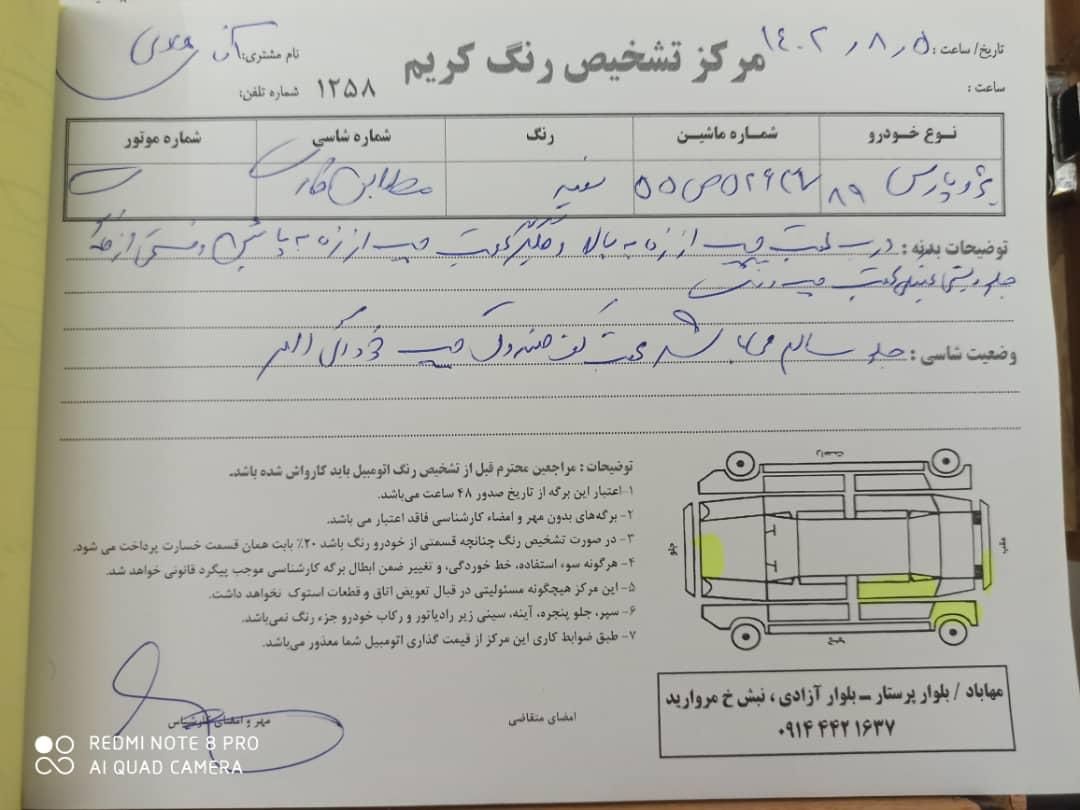 تاریخ/ ساعت : ۱۴۰۲٫۸٫۵
مرکز تشخیص رنگ کریم
نام مشتری: آقای
ساعت :
۱۲۵۸ شماره تلفن:
نوع خودرو شماره ماشین رنگ شماره شاسی شماره موتور
پژو پارس ۸۹ سفید مطابق
توضیحات بدنه : درب عقب چپ از زه به بالا و گلگیر عقب چپ از زه به پائین و قسمتی از
جلو عقب چپ رنگ
وضعیت شاسی : جلو سالم می‌باشد عقب کف صندوق چپ خوردگی
توضیحات : مراجعین محترم قبل از تشخیص رنگ اتومبیل باید کارواش شده باشد.
۱-اعتبار این برگه از تاریخ صدور ۴۸ ساعت می‌باشد.
۲- برگه‌های بدون مهر و امضاء کارشناسی فاقد اعتبار می باشد.
۳- در صورت تشخیص رنگ چنانچه قسمتی از خودرو رنگ باشد ۲۰٪ بابت همان قسمت خسارت پرداخت می شود.
۴- هرگونه سوء استفاده، خط خوردگی، و تغییر ضمن ابطال برگه کارشناسی موجب پیگرد قانونی خواهد شد.
۵- این مرکز هیچگونه مسئولیتی در قبال تعویض اتاق و قطعات استوک نخواهد داشت.
۶- سپر، جلو پنجره، آینه، سینی زیر رادیاتور و رکاب خودرو جزء رنگ نمی‌باشد.
۷- طبق ضوابط کاری این مرکز از قیمت گذاری اتومبیل شما معذور می‌باشد.
راست
جلو
عقب
چپ
مهاباد / بلوار پرستار ـ بلوار آزادی ، نبش خ مروارید
۰۹۱۴ ۴۴۲ ۱۶۳۷
امضای متقاضی
مهر و امضای کارشناس
REDMI NOTE 8 PRO
AI QUAD CAMERA